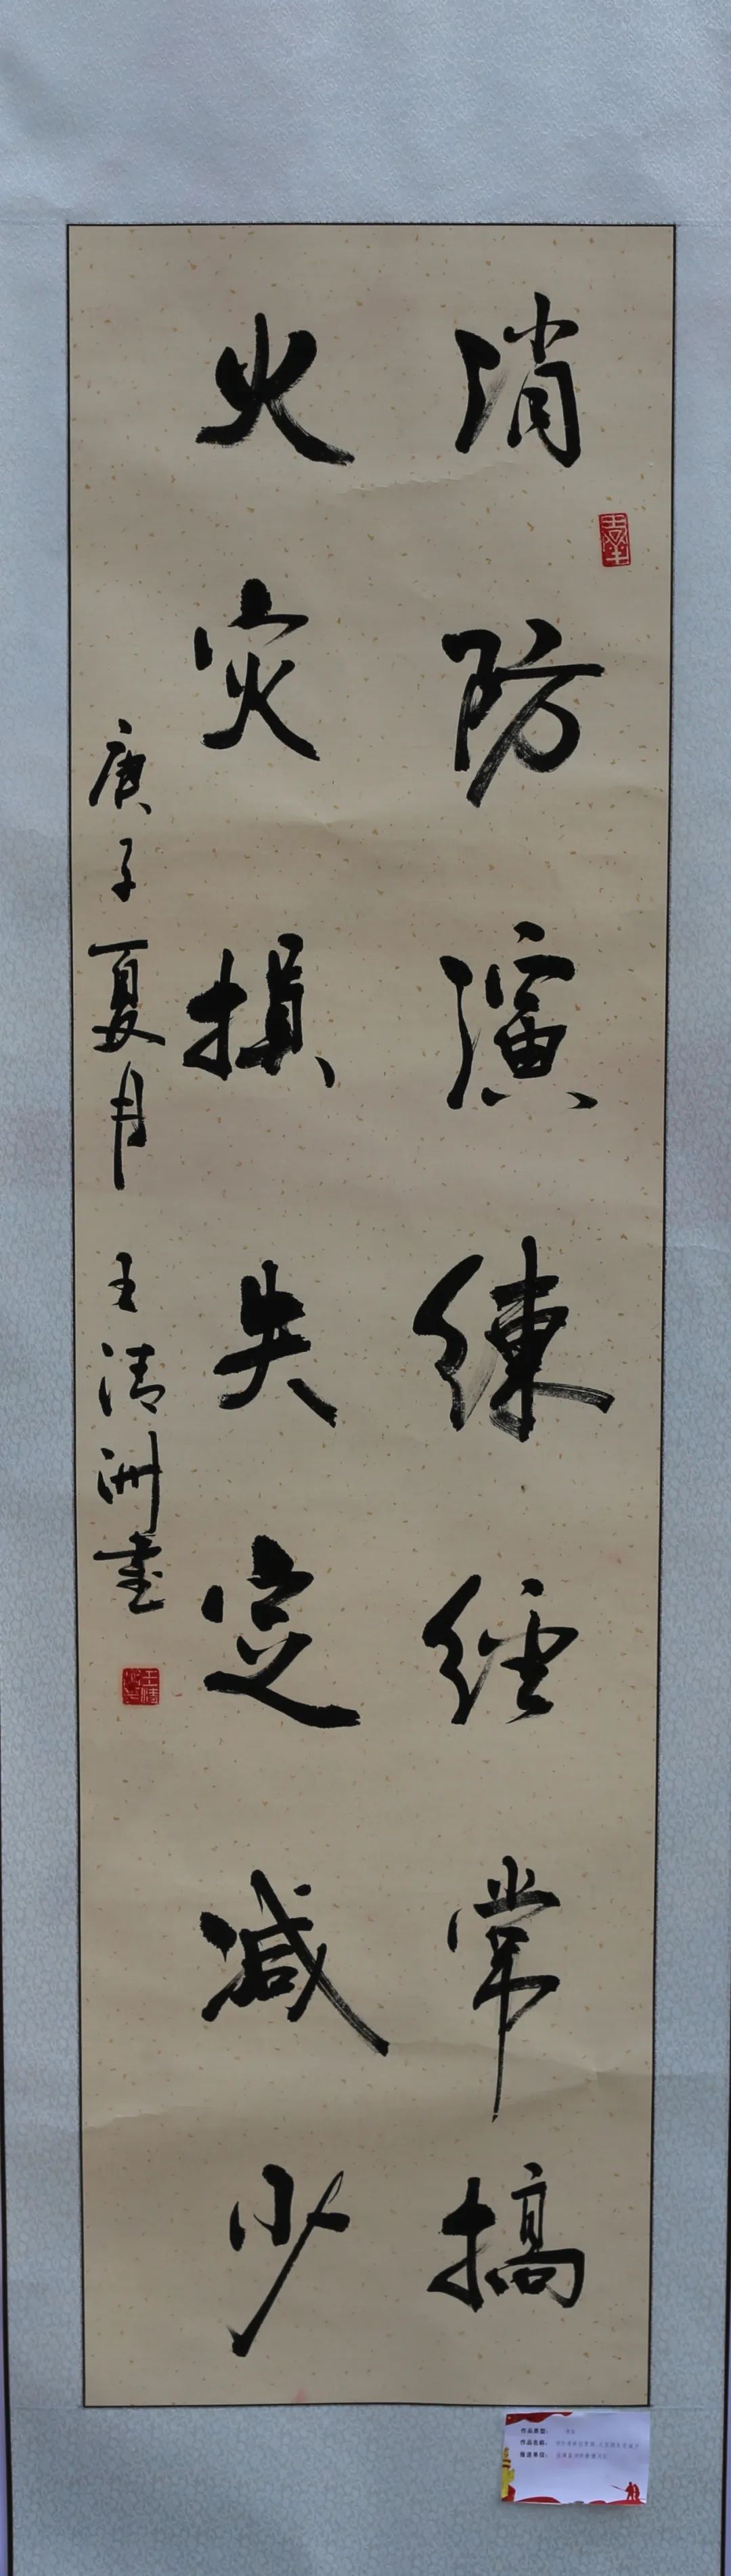 消防演練經常搞
火灾損失定减少
庚子夏月 王清洲書
作品类型：书法
作品名称：
推送单位：